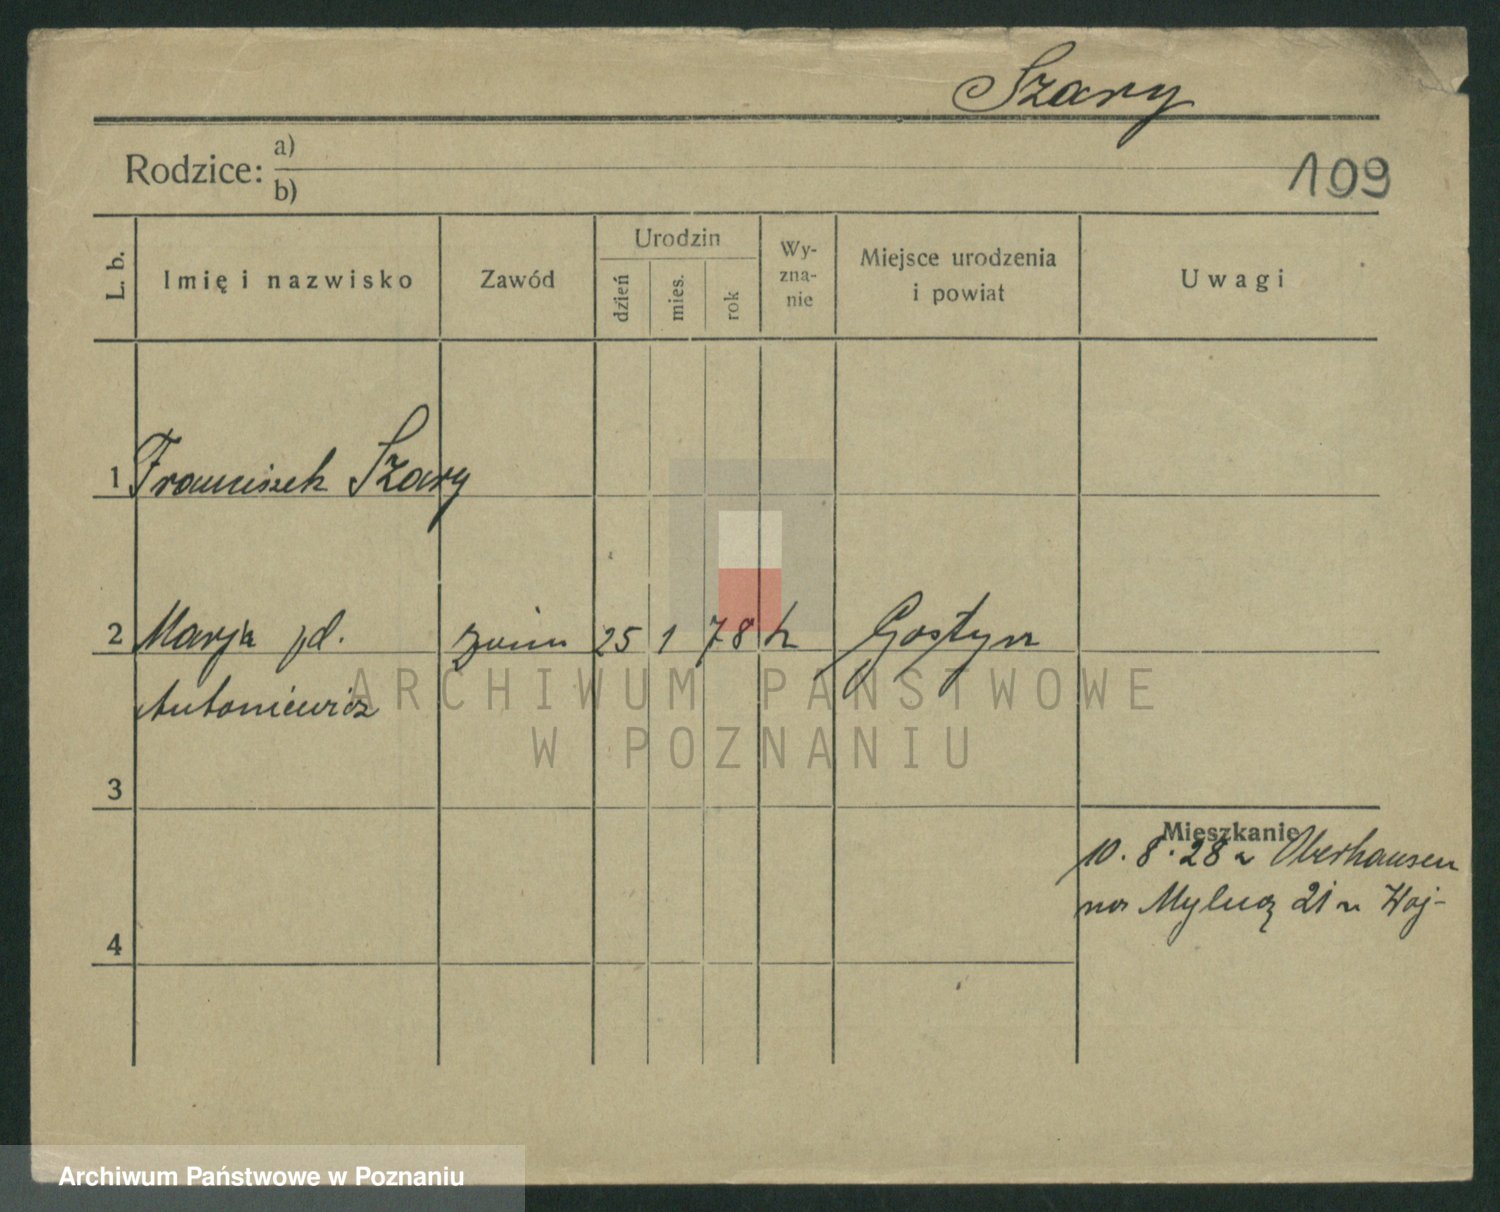 Szary
109
Rodzice: a)
b)
L. b.
Imię i nazwisko
Zawód
Urodzin
dzień
mies.
rok
Wy-
zna-
nie
Miejsce urodzenia
i powiat
Uwagi
1 Franciszek Szary
2 Marja zd. 25 1 78 k Gostyn
Antoniewicz
3
4
Mieszkanie
10. 8. 28 z Oberhausen
na 21 u Woj-
ARCHIWUM PAŃSTWOWE
W POZNANIU
Archiwum Państwowe w Poznaniu